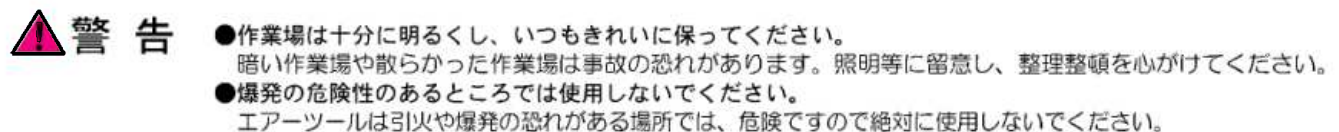 警 告
●作業場は十分に明るくし、いつもきれいに保ってください。
暗い作業場や散らかった作業場は事故の恐れがあります。照明等に留意し、整理整頓を心がけてください。
●爆発の危険性のあるところでは使用しないでください。
エアーツールは引火や爆発の恐れがある場所では、危険ですので絶対に使用しないでください。